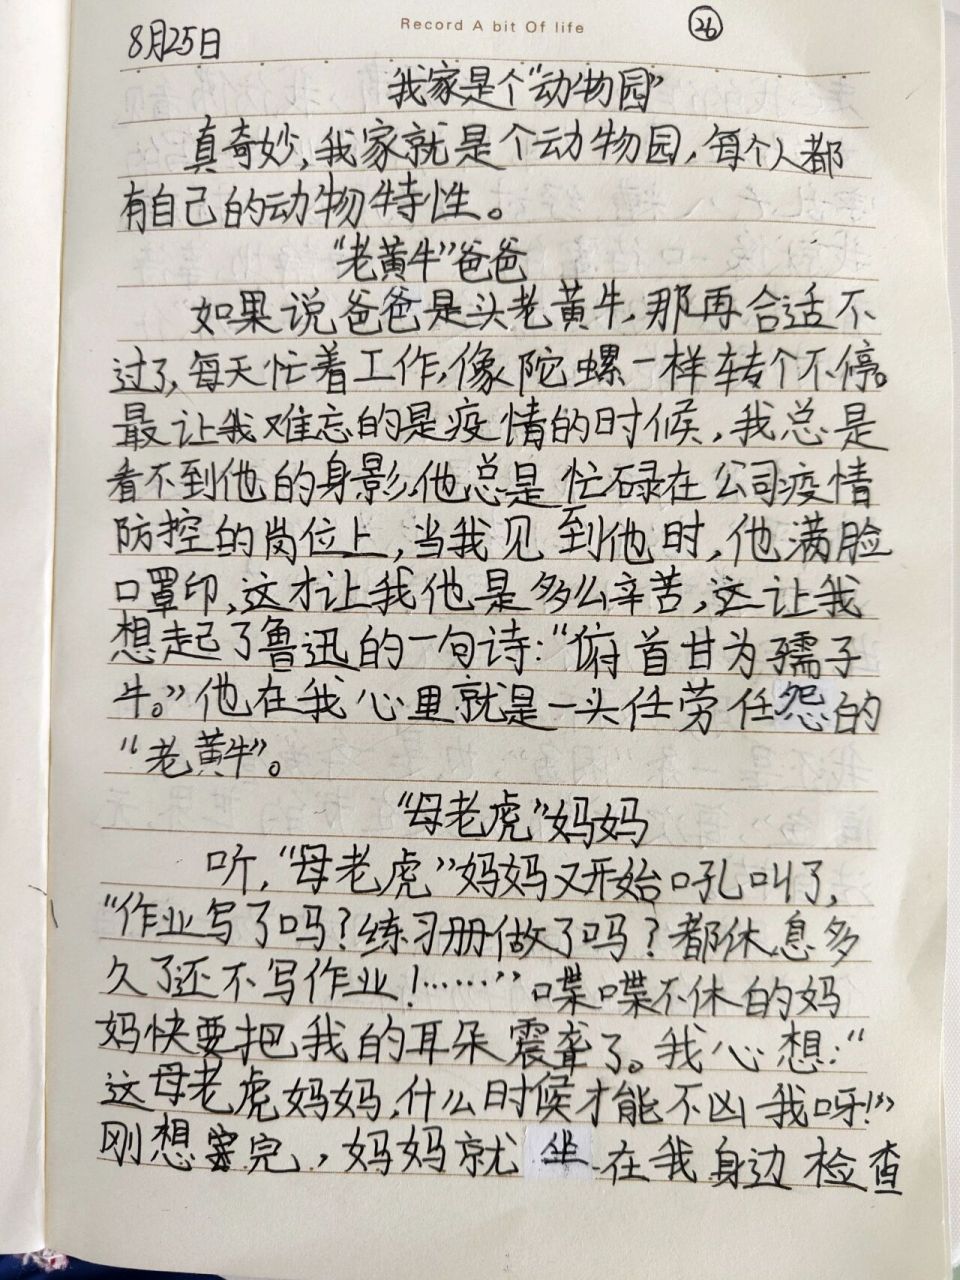 Record A bit Of life
26
8月25日
我家是个“动物园”
真奇妙,我家就是个动物园,每个人都
有自己的动物特性。
“老黄牛”爸爸
如果说爸爸是头老黄牛,那再合适不
过了,每天忙着工作,像陀螺一样转个不停。
最让我难忘的是疫情的时候,我总是
看不到他的身影,他总是忙碌在公司疫情
防控的岗位上,当我见到他时,他满脸
口罩印,这才让我他是多么辛苦,这让我
想起了鲁迅的一句诗:“俯首甘为孺子
牛。”他在我心里就是一头任劳任怨的
“老黄牛”。
“母老虎”妈妈
听,“母老虎”妈妈又开始吼叫了,
“作业写了吗?练习册做了吗?都休息多
久了还不写作业!……”喋喋不休的妈
妈快要把我的耳朵震聋了。我心想:“
这母老虎妈妈,什么时候才能不凶我呀!”
刚想完,妈妈就坐在我身边检查